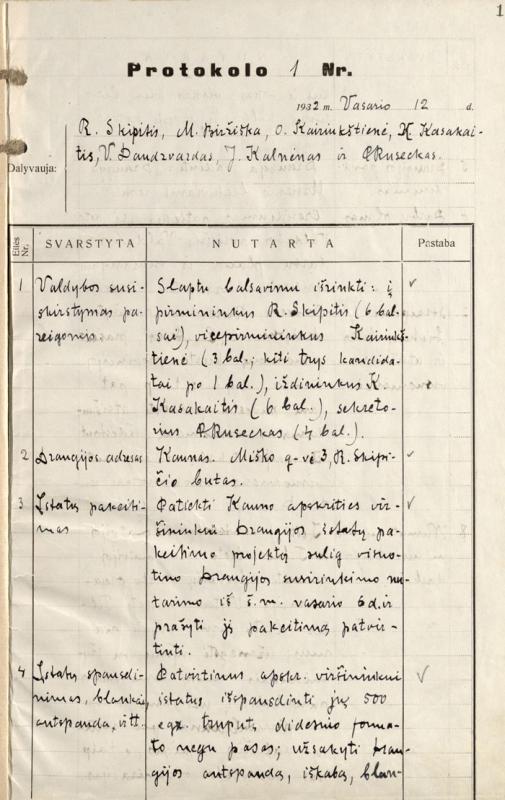 1
Protokolo 1 Nr.
1932 m. Vasario 12 d.
Dalyvauja:
R. Skipitis, M. Biržiška, O. Kairiukštienė, K. Kasakai-
tis, V. Daudzvardas, J. Kalnėnas ir P. Ruseckas.
Eilės Nr.
SVARSTYTA
NUTARTA
Pastaba
1
Valdybos susi-
skirstymas pa-
reigomis
Slaptu balsavimu išrinkti: į
pirmininkus R. Skipitis (6 bal-
sai), vicepirmininkus Kairiukš-
tienė (3 bal.; kiti trys kandida-
tai po 1 bal.), iždininkus K.
Kasakaitis (6 bal.), sekreto-
rius P. Ruseckas (4 bal.).
2
Draugijos adresas
Kaunas. Miško g-vė 3, R. Skipi-
čio butas.
3
Įstatų pakeiti-
mas
Patiekti Kauno apskrities vir-
šininkui Draugijos įstatų pa-
keitimo projektą sulig visuo-
tino Draugijos susirinkimo nu-
tarimo iš š.m. vasario 6 d. ir
prašyti jį pakeitimą patvir-
tinti.
4
Įstatų spausdi-
nimas, blankai,
antspauda, ir tt.
Patvirtinus apskr. viršininkui
įstatus išspausdinti jų 500
egz. truputį didesnio forma-
to negu pasas; užsakyti Drau-
gijos antspaudą, iškabą, blan-